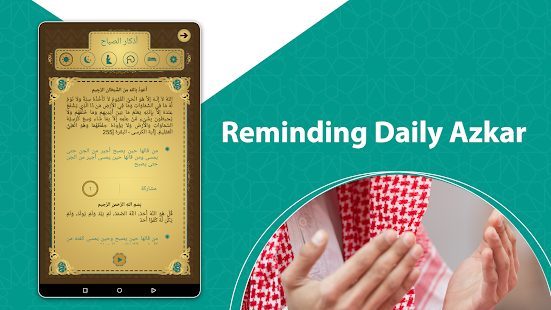 أذكار الصباح
أَعُوذُ بِاللهِ مِنْ الشَّيْطَانِ الرَّجِيمِ
اللهُ لاَ إِلَهَ إِلاَّ هُوَ الْحَيُّ الْقَيُّومُ لاَ تَأْخُذُهُ سِنَةٌ وَلاَ نَوْمٌ
لَّهُ مَا فِي السَّمَاوَاتِ وَمَا فِي الأَرْضِ مَن ذَا الَّذِي يَشْفَعُ
عِنْدَهُ إِلاَّ بِإِذْنِهِ يَعْلَمُ مَا بَيْنَ أَيْدِيهِمْ وَمَا خَلْفَهُمْ وَلاَ
يُحِيطُونَ بِشَيْءٍ مِّنْ عِلْمِهِ إِلاَّ بِمَا شَاء وَسِعَ كُرْسِيُّهُ
السَّمَاوَاتِ وَالأَرْضَ وَلاَ يَؤُودُهُ حِفْظُهُمَا وَهُوَ الْعَلِيُّ
الْعَظِيمُ. [آية الكرسى - البقرة 255]
من قالها حين يصبح أجير من الجن حتى
يمسى ومن قالها حين يمسى أجير من الجن
حتى يصبح
مشاركة
١
بِسْمِ اللهِ الرَّحْمنِ الرَّحِيمِ
قُلْ هُوَ اللَّهُ أَحَدٌ، اللَّهُ الصَّمَدُ، لَمْ يَلِدْ وَلَمْ يُولَدْ، وَلَمْ
يَكُن لَّهُ كُفُوًا أَحَدٌ
من قالها حين يصبح وحين يمسى كفته من
Reminding Daily Azkar